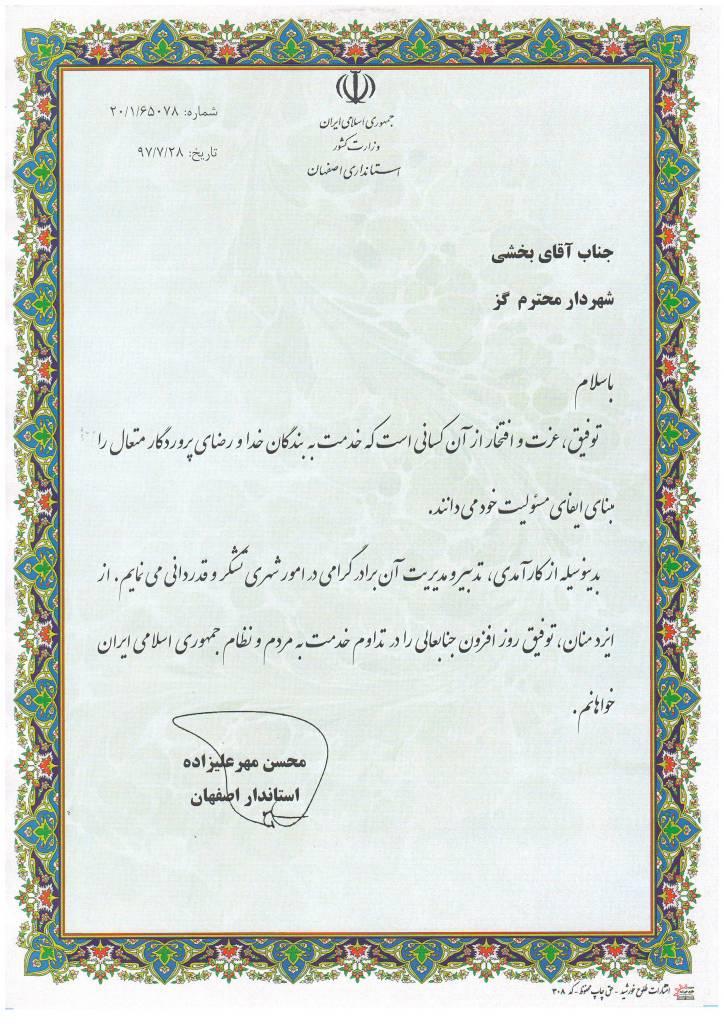 جمهوری اسلامی ایران
وزارت کشور
استانداری اصفهان
شماره: ۲۰/۱/۶۵۰۷۸
تاریخ: ۹۷/۷/۲۸
جناب آقای بخشی
شهردار محترم گز
باسلام
توفیق، عزت و افتخار از آن کسانی است که خدمت به بندگان خدا و رضای پروردگار متعال را
مبنای ایفای مسئولیت خود می دانند.
بدینوسیله از کارآمدی، تدبیر و مدیریت آن برادر گرامی در امور شهری تشکر و قدردانی می نمایم. از
ایزد منان، توفیق روز افزون جنابعالی را در تداوم خدمت به مردم و نظام جمهوری اسلامی ایران
خواهانم.
محسن مهرعلیزاده
استاندار اصفهان
انتشارات طلوع خورشید - حق چاپ محفوظ - کد ۳۰۸